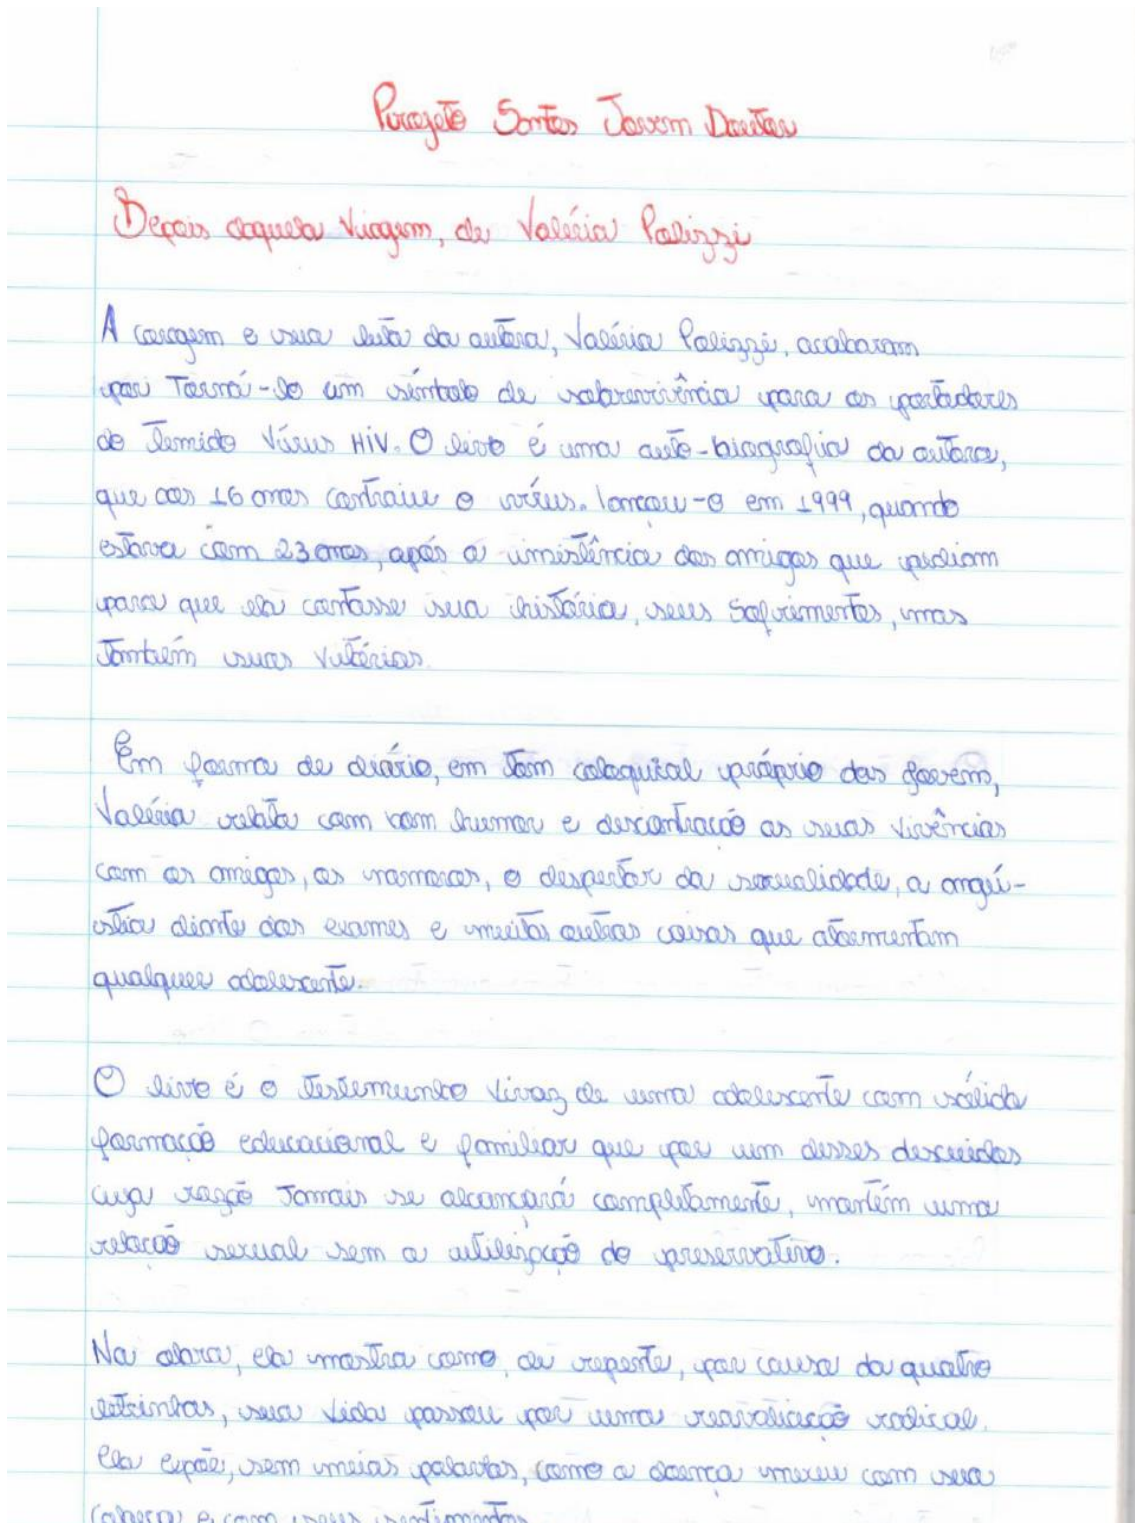 Projeto Santos Jovem Doutor
Depois daquela Viagem, de Valéria Polizzi
A coragem e sua luta da autora, Valéria Polizzi, acabaram
por Torná-lo um símbolo de sobrevivência para os portadores
do Temido Vírus HIV. O livro é uma auto-biografia da autora,
que aos 16 anos contraiu o vírus. lançou-o em 1999, quando
estava com 23 anos, após a insistência dos amigos que pediam
para que ela contasse sua história, seus Sofrimentos, mas
Também suas Vitórias.
Em forma de diário, em Tom coloquial próprio dos jovens,
Valéria relata com bom humor e descontração as suas Vivências
com os amigos, os namoros, o despertar da sexualidade, a angú-
stia diante dos exames e muitas outras coisas que atormentam
qualquer adolescente.
O livro é o Testemunho Vivaz de uma adolescente com sólida
formação educacional e familiar que por um desses descuidos
cuja razão Jamais se alcançará completamente, mantém uma
relação sexual sem a utilização do preservativo.
Na obra, ela mostra como, de repente, por causa da quatro
letrinhas, sua Vida passou por uma reavaliação radical.
Ela expõe, sem meias palavras, como a doença mexeu com sua
cabeça e com seus sentimentos